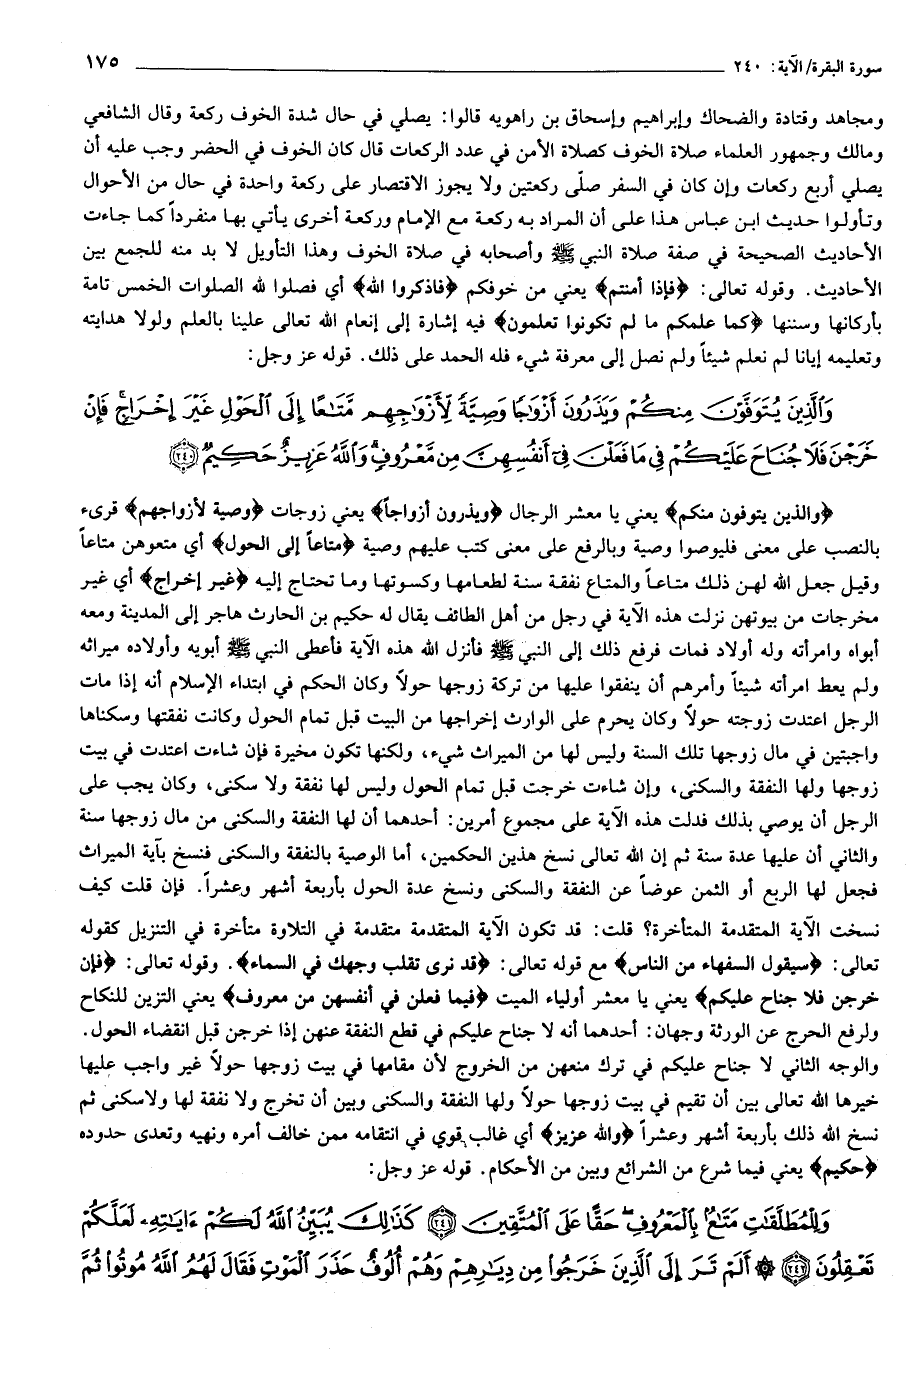 سورة البقرة/ الآية: ٢٤٠ ١٧٥
ومجاهد وقتادة والضحاك وإبراهيم وإسحاق بن راهويه قالوا: يصلي في حال شدة الخوف ركعة وقال الشافعي
ومالك وجمهور العلماء صلاة الخوف كصلاة الأمن في عدد الركعات قال كان الخوف في الحضر وجب عليه أن
يصلي أربع ركعات وإن كان في السفر صلّى ركعتين ولا يجوز الاقتصار على ركعة واحدة في حال من الأحوال
وتأولوا حديث ابن عباس هذا على أن المراد به ركعة مع الإمام وركعة أخرى يأتي بها منفرداً كما جاءت
الأحاديث الصحيحة في صفة صلاة النبي ﷺ وأصحابه في صلاة الخوف وهذا التأويل لا بد منه للجمع بين
الأحاديث. وقوله تعالى: ﴿فإذا أمنتم﴾ يعني من خوفكم ﴿فاذكروا الله﴾ أي فصلوا لله الصلوات الخمس تامة
بأركانها وسننها ﴿كما علمكم ما لم تكونوا تعلمون﴾ فيه إشارة إلى إنعام الله تعالى علينا بالعلم ولولا هدايته
وتعليمه إيانا لم نعلم شيئاً ولم نصل إلى معرفة شيء فله الحمد على ذلك. قوله عز وجل:
وَٱلَّذِينَ يُتَوَفَّوْنَ مِنكُمْ وَيَذَرُونَ أَزْوَٰجًا وَصِيَّةً لِّأَزْوَٰجِهِم مَّتَٰعًا إِلَى ٱلْحَوْلِ غَيْرَ إِخْرَاجٍ ۚ فَإِنْ
خَرَجْنَ فَلَا جُنَاحَ عَلَيْكُمْ فِى مَا فَعَلْنَ فِىٓ أَنفُسِهِنَّ مِن مَّعْرُوفٍ ۗ وَٱللَّهُ عَزِيزٌ حَكِيمٌ ﴿٢٤٠﴾
﴿والذين يتوفون منكم﴾ يعني يا معشر الرجال ﴿ويذرون أزواجاً﴾ يعني زوجات ﴿وصية لأزواجهم﴾ قرىء
بالنصب على معنى فليوصوا وصية وبالرفع على معنى كتب عليهم وصية ﴿متاعاً إلى الحول﴾ أي متعوهن متاعاً
وقيل جعل الله لهن ذلك متاعاً والمتاع نفقة سنة لطعامها وكسوتها وما تحتاج إليه ﴿غير إخراج﴾ أي غير
مخرجات من بيوتهن نزلت هذه الآية في رجل من أهل الطائف يقال له حكيم بن الحارث هاجر إلى المدينة ومعه
أبواه وامرأته وله أولاد فمات فرفع ذلك إلى النبي ﷺ فأنزل الله هذه الآية فأعطى النبي ﷺ أبويه وأولاده ميراثه
ولم يعط امرأته شيئاً وأمرهم أن ينفقوا عليها من تركة زوجها حولاً وكان الحكم في ابتداء الإسلام أنه إذا مات
الرجل اعتدت زوجته حولاً وكان يحرم على الوارث إخراجها من البيت قبل تمام الحول وكانت نفقتها وسكناها
واجبتين في مال زوجها تلك السنة وليس لها من الميراث شيء، ولكنها تكون مخيرة فإن شاءت اعتدت في بيت
زوجها ولها النفقة والسكنى، وإن شاءت خرجت قبل تمام الحول وليس لها نفقة ولا سكنى، وكان يجب على
الرجل أن يوصي بذلك فدلت هذه الآية على مجموع أمرين: أحدهما أن لها النفقة والسكنى من مال زوجها سنة
والثاني أن عليها عدة سنة ثم إن الله تعالى نسخ هذين الحكمين، أما الوصية بالنفقة والسكنى فنسخ بآية الميراث
فجعل لها الربع أو الثمن عوضاً عن النفقة والسكنى ونسخ عدة الحول بأربعة أشهر وعشراً. فإن قلت كيف
نسخت الآية المتقدمة المتأخرة؟ قلت: قد تكون الآية المتقدمة متقدمة في التلاوة متأخرة في التنزيل كقوله
تعالى: ﴿سيقول السفهاء من الناس﴾ مع قوله تعالى: ﴿قد نرى تقلب وجهك في السماء﴾. وقوله تعالى: ﴿فإن
خرجن فلا جناح عليكم﴾ يعني يا معشر أولياء الميت ﴿فيما فعلن في أنفسهن من معروف﴾ يعني التزين للنكاح
ولرفع الحرج عن الورثة وجهان: أحدهما أنه لا جناح عليكم في قطع النفقة عنهن إذا خرجن قبل انقضاء الحول.
والوجه الثاني لا جناح عليكم في ترك منعهن من الخروج لأن مقامها في بيت زوجها حولاً غير واجب عليها
خيرها الله تعالى بين أن تقيم في بيت زوجها حولاً ولها النفقة والسكنى وبين أن تخرج ولا نفقة لها ولاسكنى ثم
نسخ الله ذلك بأربعة أشهر وعشراً ﴿والله عزيز﴾ أي غالب قوي في انتقامه ممن خالف أمره ونهيه وتعدى حدوده
﴿حكيم﴾ يعني فيما شرع من الشرائع وبين من الأحكام. قوله عز وجل:
وَلِلْمُطَلَّقَٰتِ مَتَٰعٌۢ بِٱلْمَعْرُوفِ ۖ حَقًّا عَلَى ٱلْمُتَّقِينَ ﴿٢٤١﴾ كَذَٰلِكَ يُبَيِّنُ ٱللَّهُ لَكُمْ ءَايَٰتِهِۦ لَعَلَّكُمْ
تَعْقِلُونَ ﴿٢٤٢﴾ ۞ أَلَمْ تَرَ إِلَى ٱلَّذِينَ خَرَجُوا۟ مِن دِيَٰرِهِمْ وَهُمْ أُلُوفٌ حَذَرَ ٱلْمَوْتِ فَقَالَ لَهُمُ ٱللَّهُ مُوتُوا۟ ثُمَّ